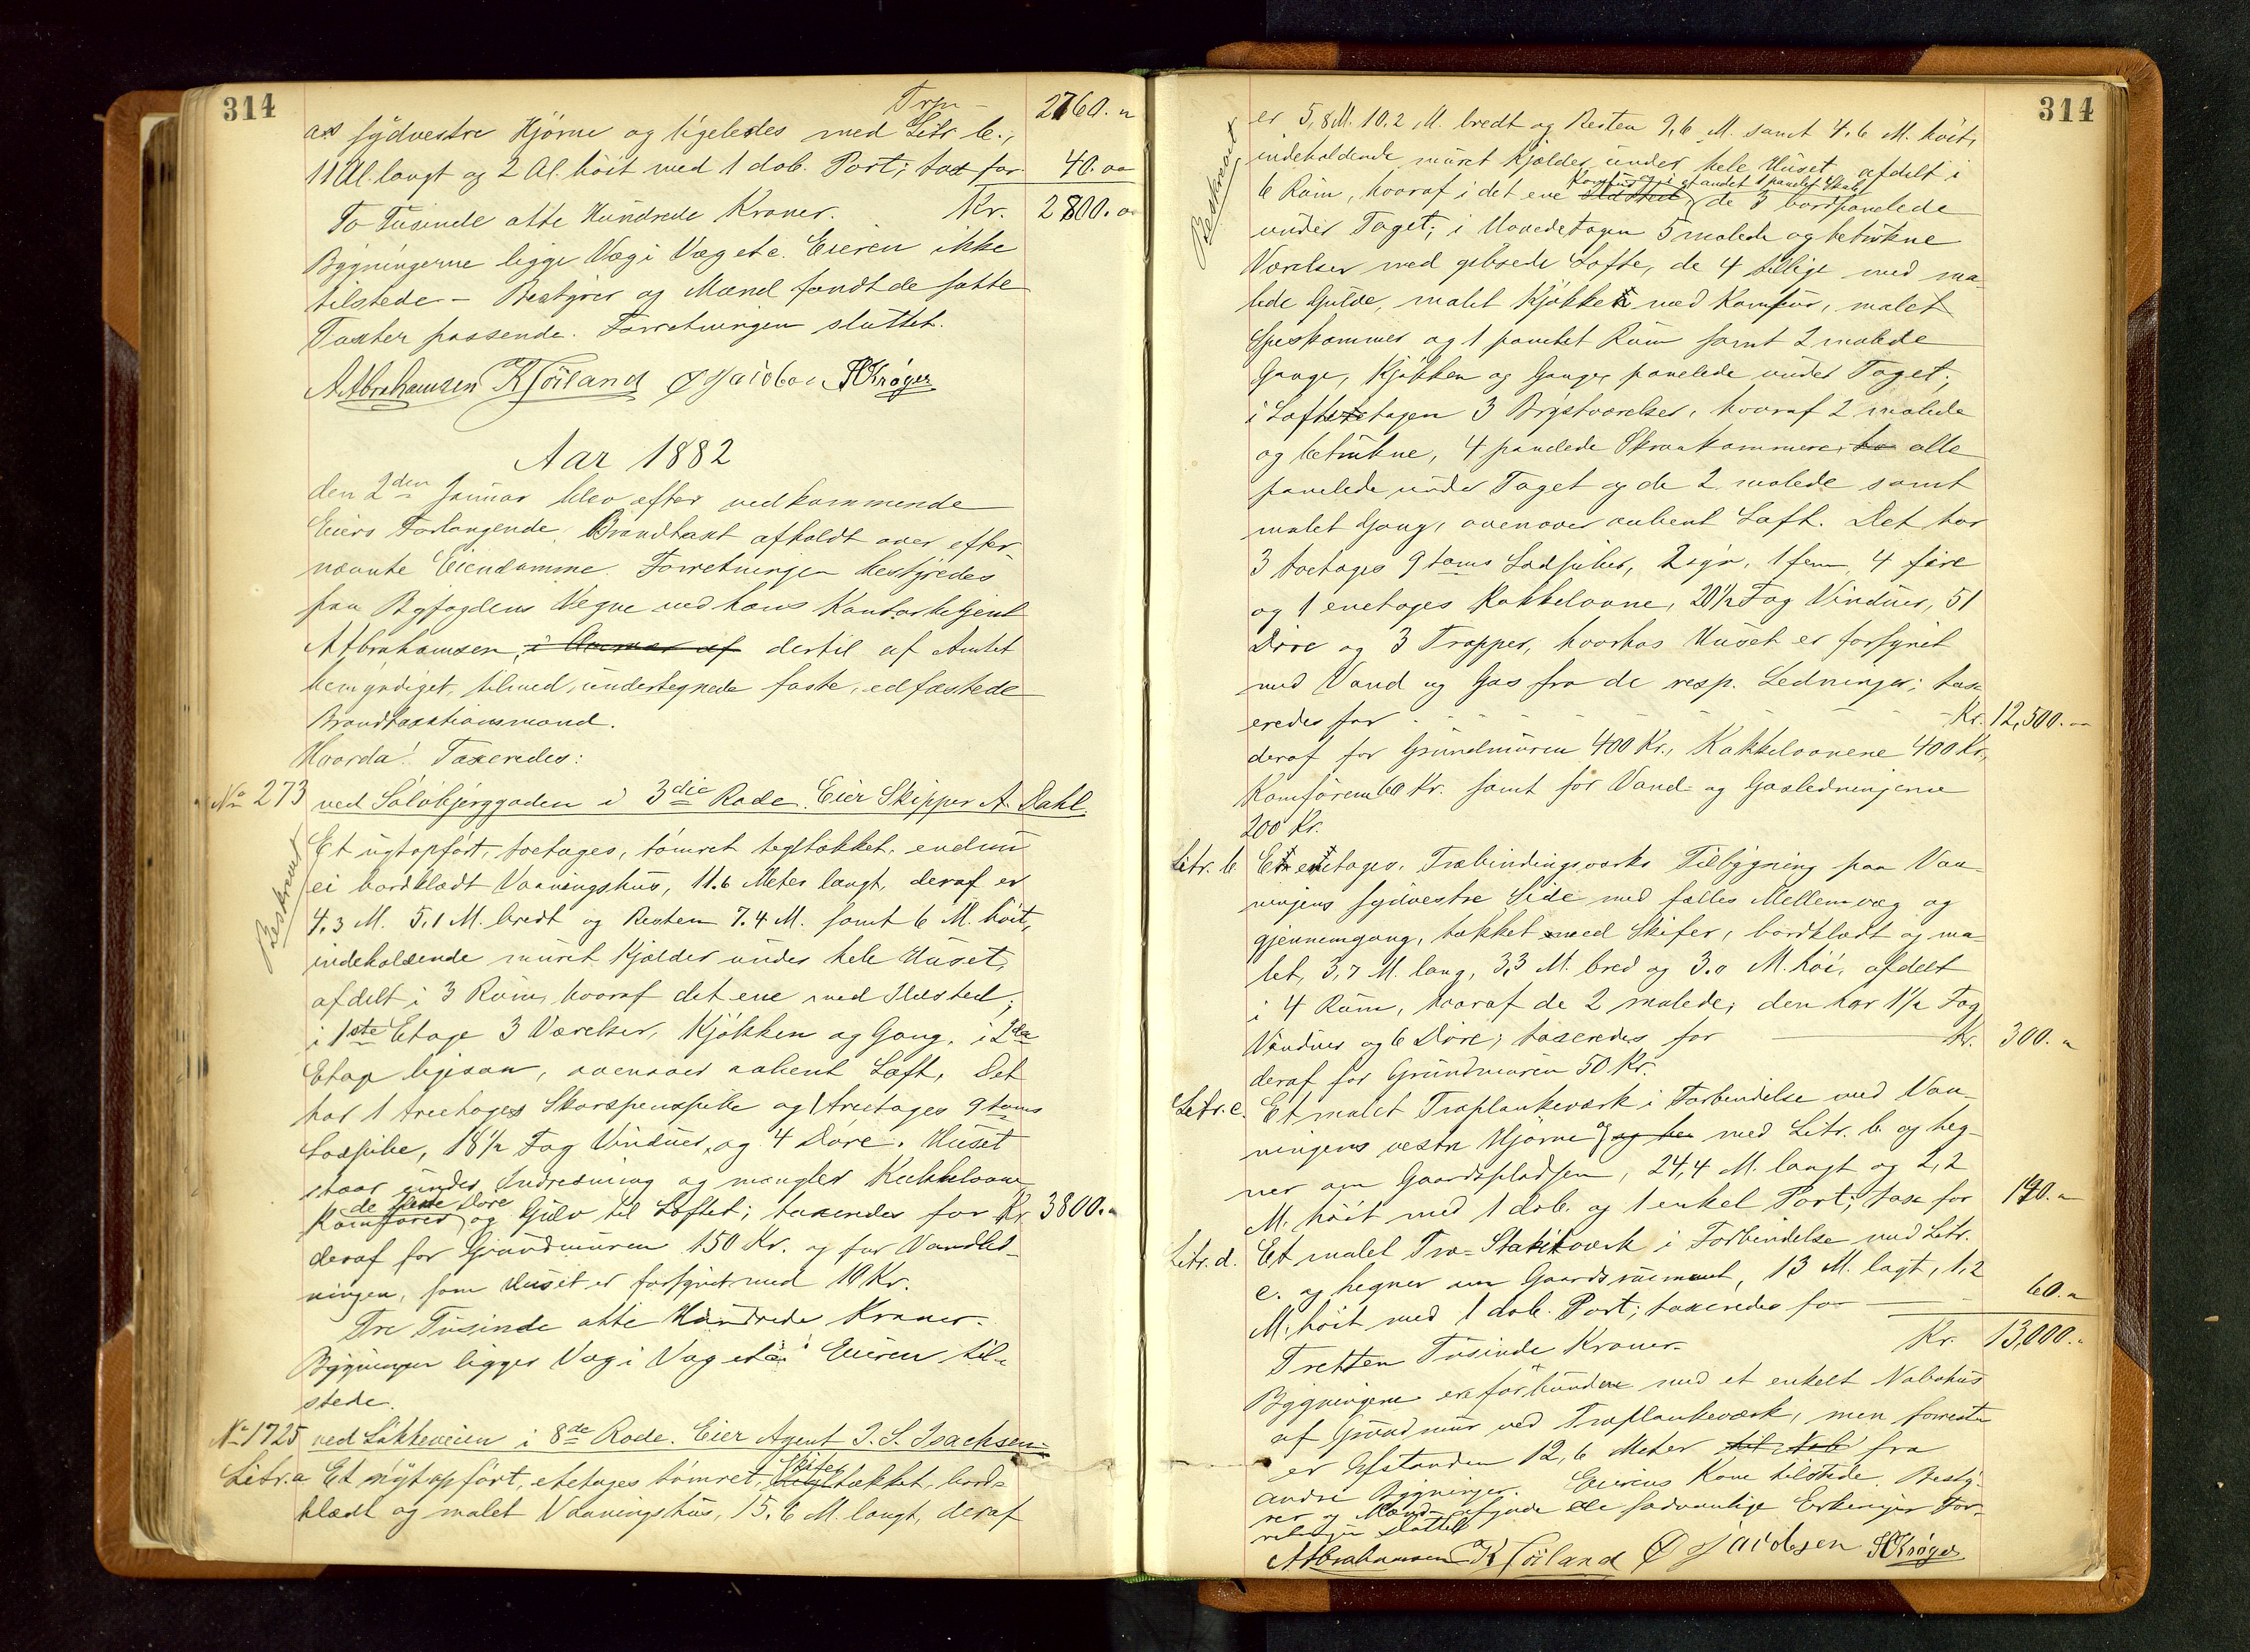 314
Trp - 2760. "
as sydvestre Hjørne og ligeledes med Litr b.,
11 Al. langt og 2 Al. høit med 1 dob. Port; tax for 40. "
To Tusinde otte Hundrede Kroner. Kr. 2800. "
Bygningerne ligge Væg i Væg etc. Eieren ikke
tilstede - Bestyrer og Mænd fandt de satte
Taxter passende. Forretningen sluttet.
A Abrahamsen K Høiland Ø Jacobsen H Krøger
Aar 1882
den 2den Januar blev efter vedkommende
Eiers Forlangende Brandtaxt afholdt over efter-
nævnte Eiendomme. Forretningen bestyredes
paa Byfogdens Vegne ved hans Kontorbetjent
A Abrahamsen, dertil af Amtet
bemyndiget, tilmed undertegnede faste, edfæstede
Brandtaxationsmænd.
Hvorda! Taxeredes:
No 273 ved Sølvbjerggaden i 3die Rode. Eier Skipper A. Dahl.
Beskrevet
Et nyt opført, toetages, tømret tegltækket, endnu
ei bordklædt Vaaningshus, 11.6 Meter langt, deraf er
4.3 M. 5,1 M. bredt og Resten 7.4 M. samt 6 M. høit,
indeholdende muret Kjælder under hele Huset,
afdelt i 3 Rum, hvoraf det ene med Ildsted;
i 1ste Etage 3 Værelser, Kjøkken og Gang, i 2den
Etage ligesaa, ovenover aabent Loft. Det
har 1 treetages Skorstenspibe og 1 treetages 9 toms
Lodpibe, 18 1/2 Fag Vinduer, og 4 Døre. Huset
staar under Indredning og mangler Kakkelovne
Komfører de fleste Døre og Gulv til Loftet; taxeredes for Kr 3800. "
deraf for Grundmuren 150 Kr. og for Vandled-
ningen, som Huset er forsynet med 10 Kr.
Tre Tusinde otte Hundrede Kroner.
Bygningen ligger Væg i Væg etc. Eieren til-
stede.
No 1725 ved Løkkeveien i 8de Rode. Eier Agent I. S. Isachsen
Litr. a Et nyt opført, etetages tømret, skifertækket, bord-
klædt og malet Vaaningshus, 15,6 M. langt, deraf
314
Beskrevet
er 5,8 M. 10.2 M. bredt og Resten 9,6 M. samt 4.6 M. høit,
indeholdende muret Kjælder under hele Huset afdelt i
6 Rum, hvoraf i det ene Ildsted Komfur og i et andet 1 panelet Skab de 3 bordpanelede
under Taget; i Hovedetagen 5 malede og betrukne
Værelser med gibsede Lofte, de 4 tillige med ma-
lede Gulve, malet Kjøkken med Komfur, malet
Speskammer og 1 panelet Rum samt 2 malede
Gange, Kjøkken og Gange panelede under Taget;
i Loftsetagen 3 Brystværelser, hvoraf 2 malede
og betrukne, 4 panelede Skraakammere, alle
panelede under Taget og de 2 malede samt
malet Gang, ovenover aabent Loft. Det har
3 toetages 9 toms Lodpiber, 2 syv, 1 fem, 4 fire
og 1 enetages Kakkelovne, 20 1/2 Fag Vinduer, 51
Døre og 3 Trapper, hvorhos Huset er forsynet
med Vand og Gas fra de resp. Ledninger; tax-
eredes for - - - - - Kr. 12,500. "
deraf for Grundmuren 400 Kr., Kakkelovnene 400 Kr.,
Komføren 60 Kr. samt for Vand- og Gasledningerne
200 Kr.
Litr. b Et etetages, Træbindingsværks Tilbygning paa Vaa-
ningens sydvestre Side med fælles Mellemvæg og
gjennemgang, tækket med Skifer, bordklædt og ma-
let, 3,7 M. lang, 3,3 M. bred og 3.0 M. høi, afdelt
i 4 Rum, hvoraf de 2 malede; den har 1 1/2 Fag
Vinduer og 6 Døre; taxeredes for Kr. 300. "
deraf for Grundmuren 50 Kr.
Litr. c. Et malet Træplankeværk i Forbindelse med Vaa-
ningens vestre Hjørne og med Litr. b. og heg-
ner om Gaardspladsen, 24,4 M. langt og 2,2
M. høit med 1 dob. og 1 enkel Port; tax for 140. "
Litr. d. Et malet Træ-Stakitværk i Forbindelse med Litr.
c. og hegner om Gaardsrummet, 13 M. lagt, 1,2
M. høit med 1 dob. Port; taxeredes for 60. "
Tretten Tusinde Kroner. Kr. 13,000. "
Bygningerne ere forbundne med et enkelt Nabohus
af Grundmur ved Træplankeværk, men forresten
er Afstanden 12,6 Meter fra
andre Bygninger. Eierens Kone tilstede. Besty-
rer og Mænd afgjøde de sædvanlige Erkjæringer For-
retningen sluttet
A Abrahamsen K Høiland Ø Jacobsen H Krøger